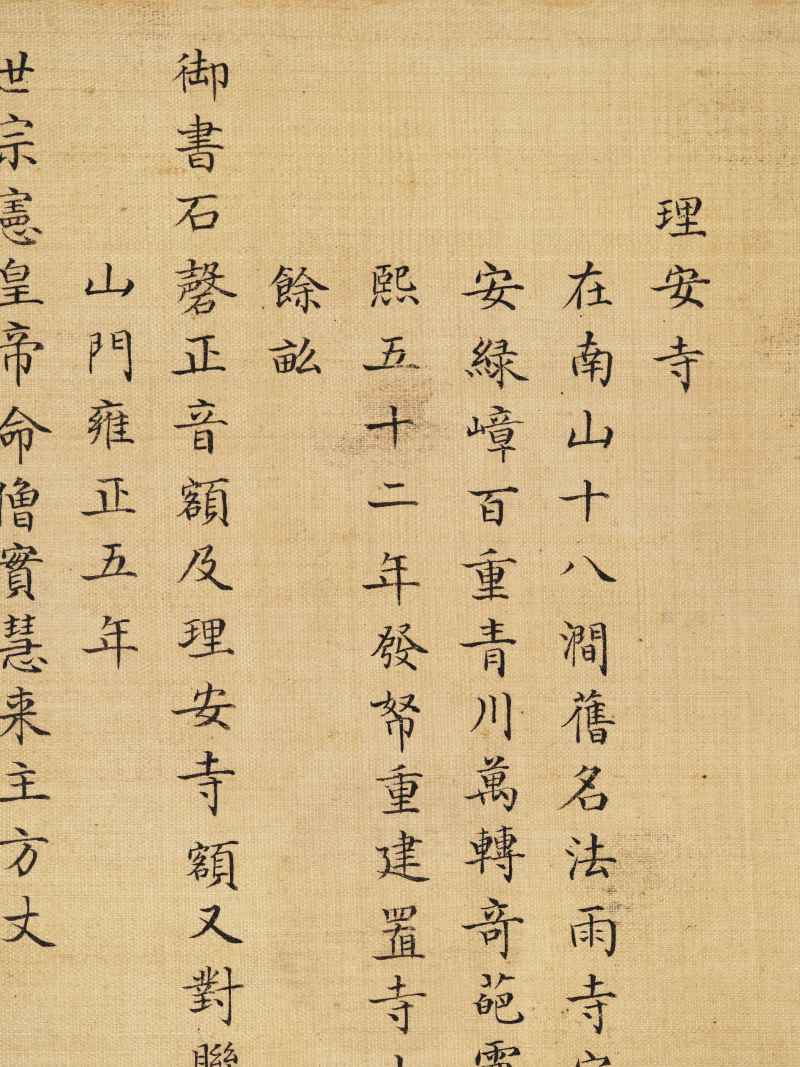 理安寺
在南山十八澗舊名法雨寺
安綠嶂百重青川萬轉奇葩
熙五十二年發帑重建置寺
餘畝
御書石磬正音額及理安寺額又對聯
山門雍正五年
世宗憲皇帝命僧實慧来主方丈